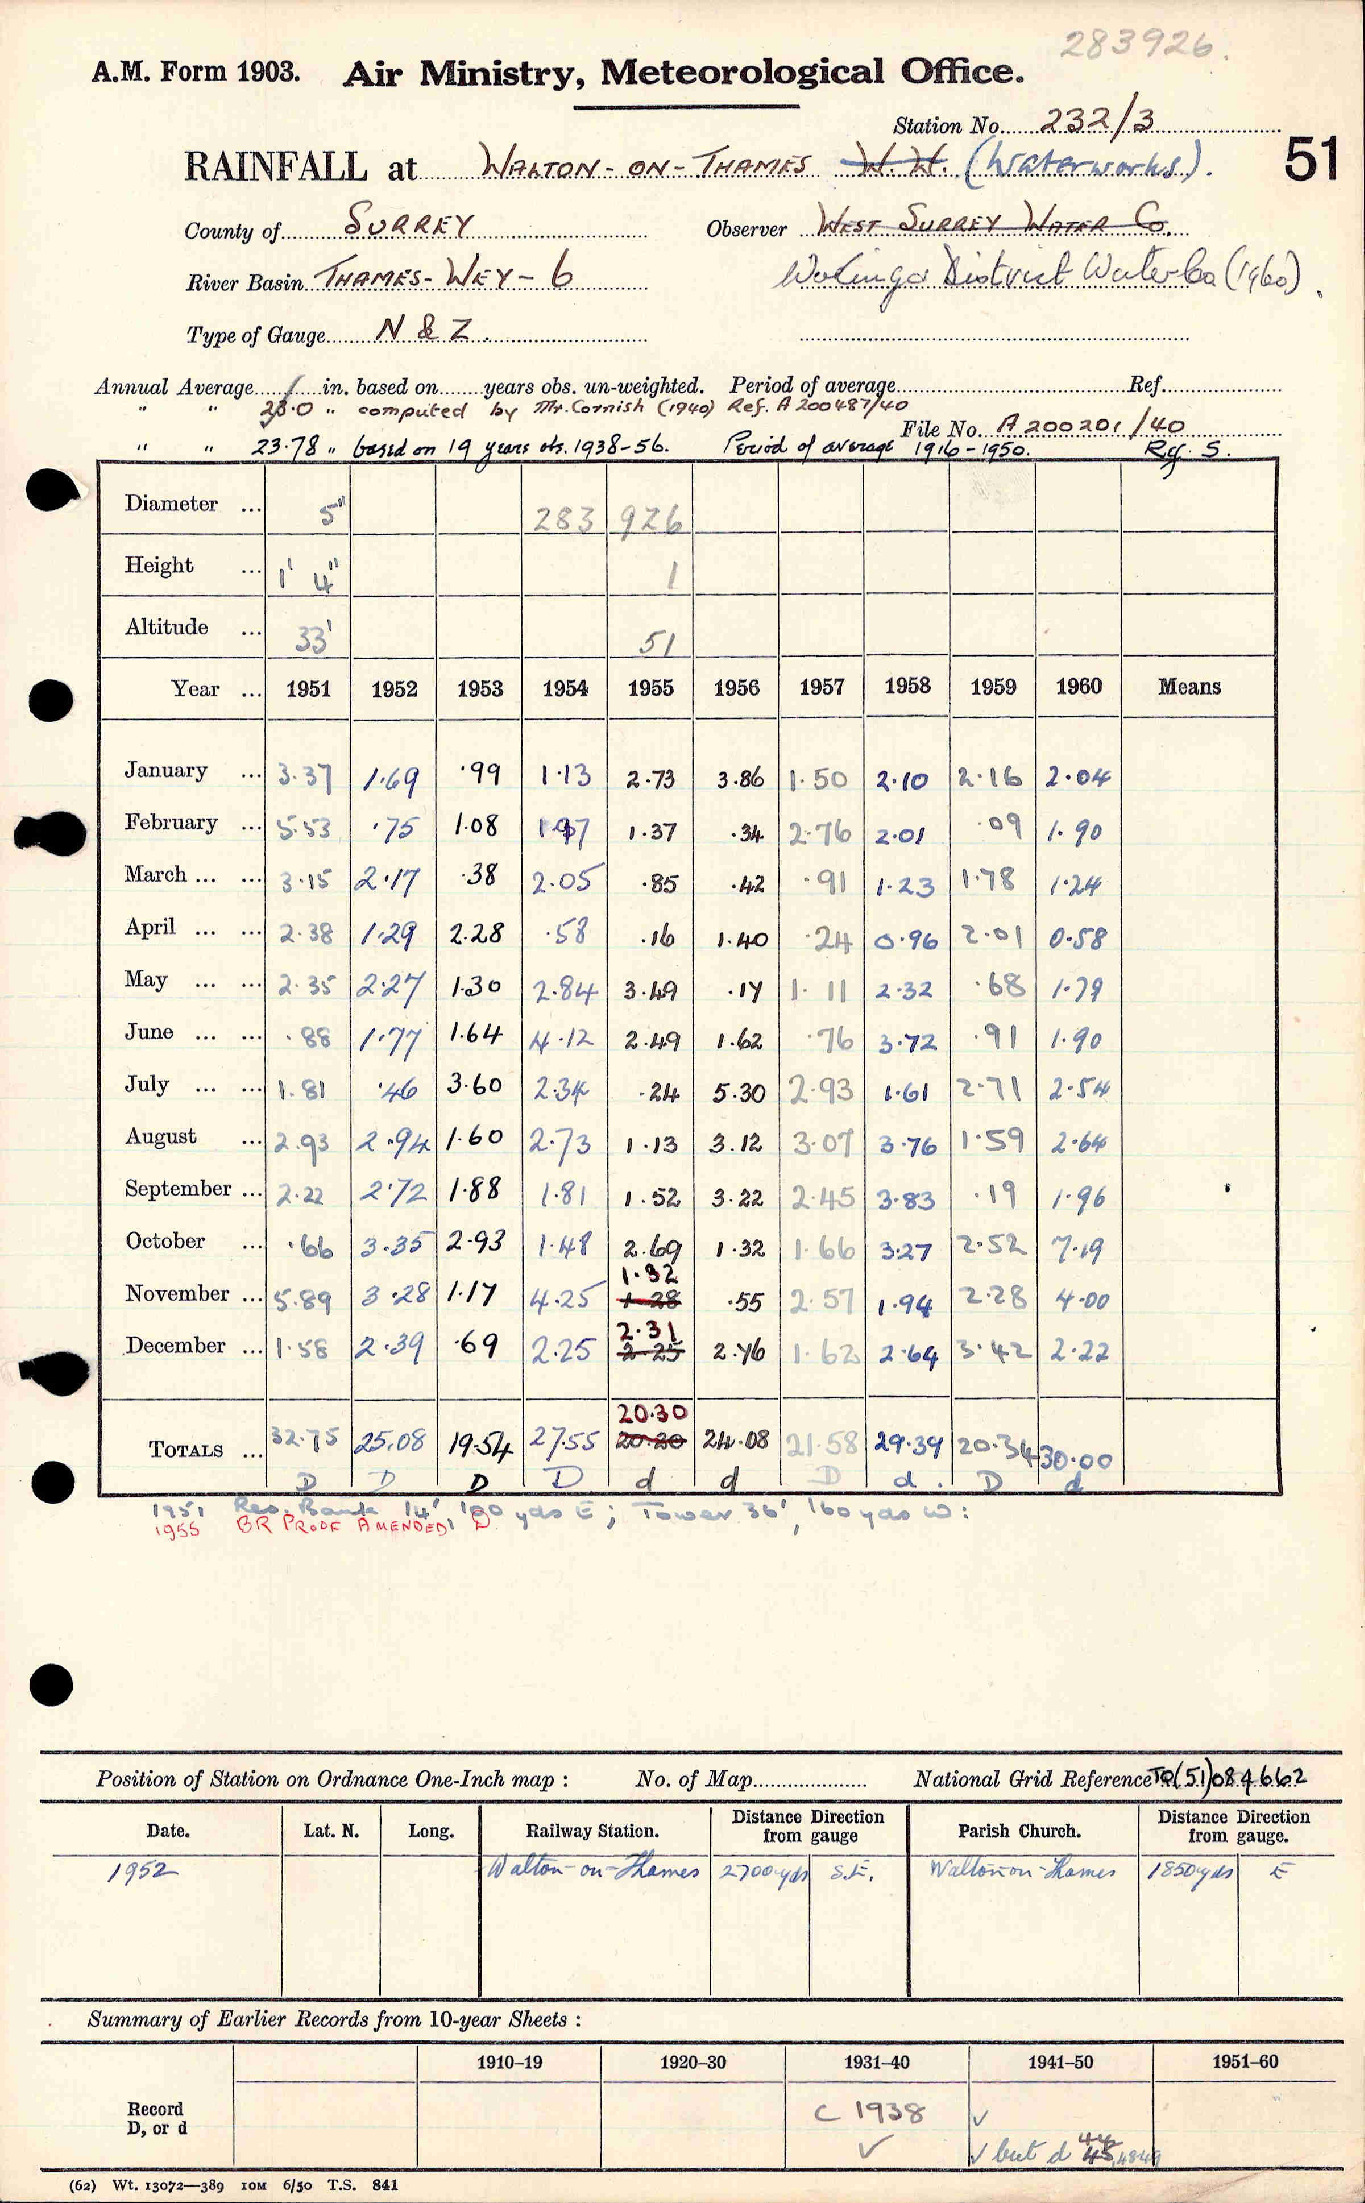 283926.
A.M. Form 1903. Air Ministry, Meteorological Office.
Station No. 232/3
51
RAINFALL at WALTON-ON-THAMES W.W. (Waterworks).
County of SURREY Observer WEST SURREY WATER Co.
River Basin THAMES-WEY-6 Wokingo District Water Co (1960).
Type of Gauge N & Z.
Annual Average / in. based on years obs. un-weighted. Period of average Ref.
" " 23.0 " computed by Mr. Cornish (1940) Ref. A 200487/40
File No. A 200201/40
" " 23.78 " based on 19 years obs. 1938-56. Period of average 1916-1950. Rg. S.
Diameter ... 5" 283 926
Height ... 1' 4" 1
Altitude ... 33' 51
Year ... 1951 1952 1953 1954 1955 1956 1957 1958 1959 1960 Means
January ... 3.37 1.69 .99 1.13 2.73 3.86 1.50 2.10 2.16 2.04
February ... 5.53 .75 1.08 1.97 1.37 .34 2.76 2.01 .09 1.90
March ... ... 3.15 2.17 .38 2.05 .85 .42 .91 1.23 1.78 1.24
April ... ... 2.38 1.29 2.28 .58 .16 1.40 .24 0.96 2.01 0.58
May ... ... 2.35 2.27 1.30 2.84 3.49 .17 1.11 2.32 .68 1.79
June ... ... .88 1.77 1.64 4.12 2.49 1.62 .76 3.72 .91 1.90
July ... ... 1.81 .46 3.60 2.34 .24 5.30 2.93 1.61 2.71 2.54
August ... 2.93 2.94 1.60 2.73 1.13 3.12 3.07 3.76 1.59 2.64
September ... 2.22 2.72 1.88 1.81 1.52 3.22 2.45 3.83 .19 1.96
October ... .66 3.35 2.93 1.48 2.69 1.32 1.66 3.27 2.52 7.19
1.32
November ... 5.89 3.28 1.17 4.25 1.28 .55 2.57 1.94 2.28 4.00
2.31
December ... 1.58 2.39 .69 2.25 2.25 2.76 1.62 2.64 3.42 2.22
20.30
TOTALS ... 32.75 25.08 19.54 27.55 20.20 24.08 21.58 29.39 20.34 30.00
D D D D d d D d. D d
1951 Res. Bank 14', 100 yds E; Tower 36', 160 yds W:
1955 BR PROOF AMENDED,
Position of Station on Ordnance One-Inch map : No. of Map National Grid Reference TQ(51)084662
Date. Lat. N. Long. Railway Station. Distance Direction from gauge Parish Church. Distance Direction from gauge.
1952 Walton-on-Thames 2700 yds S.E. Walton-on-Thames 1850 yds E
Summary of Earlier Records from 10-year Sheets :
1910–19 1920–30 1931–40 1941–50 1951–60
Record C 1938 ✓
D, or d ✓ ✓ but d 44 45, 48 49
(62) Wt. 13072—389 10M 6/50 T.S. 841